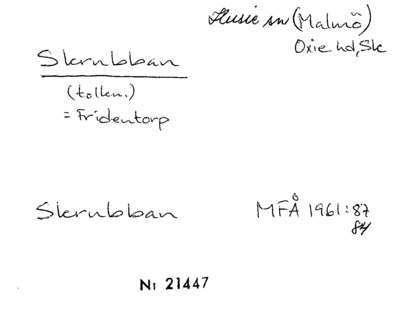 Husie sn (Malmö)
Oxie hd, Sk
Skrubban
(tolkn.)
= Fridentorp
Skrubban MFÅ 1961:87
84
Nr 21447